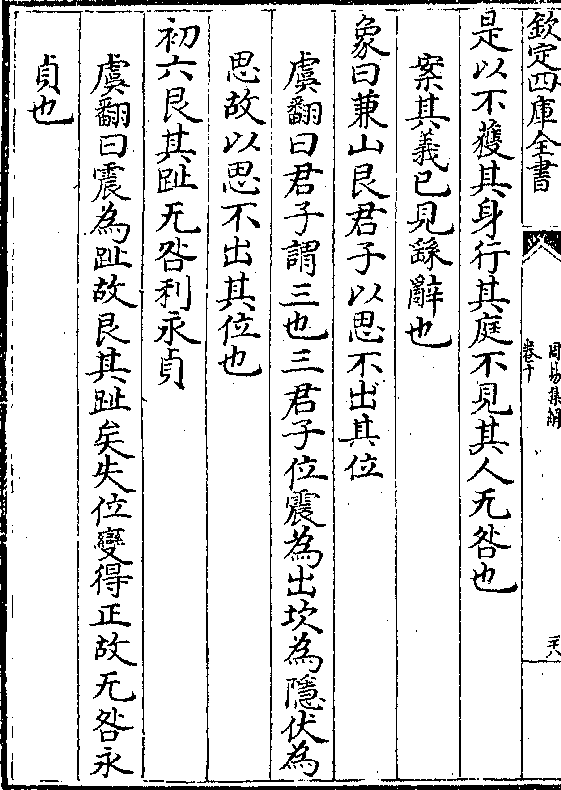 欽定四庫全書
周易集解
卷十
六
是以不獲其身行其庭不見其人无咎也
案其義已見繇辭也
象曰兼山艮君子以思不出其位
虞翻曰君子謂三也三君子位震為出坎為隱伏為
思故以思不出其位也
初六艮其趾无咎利永貞
虞翻曰震為趾故艮其趾矣失位變得正故无咎永
貞也